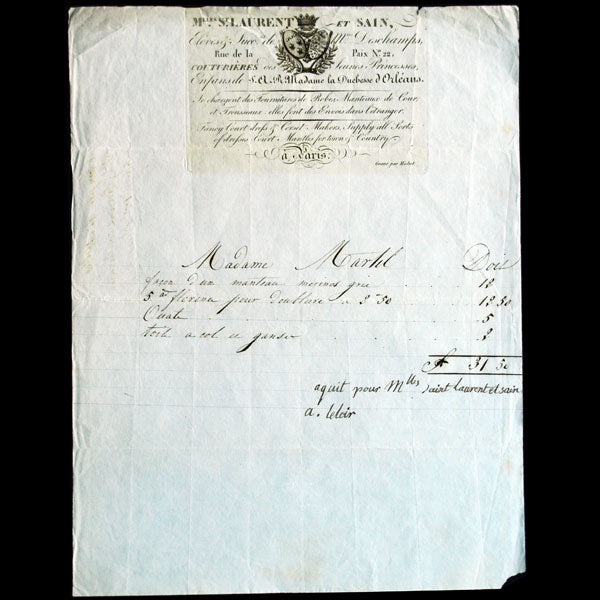 Mlles St. LAURENT ET SAIN,
Elèves & Succ. de Mme Deschamps,
Rue de la Paix No. 22.
COUTURIÈRES des Jeunes Princesses,
Enfans de S.A.R. Madame la Duchesse d'Orléans.
Se chargent des Fournitures de Robes, Manteaux de Cour,
et Trousseaux elles font des Envois dans l'étranger.
Fancy Court dress & Corset Makers, Supply all Sorts
of dresses Court Mantles for town & Country
à Paris.
Gravé par
Madame Martel Doit
façon d'un manteau merinos gris 12
5 au florence pour doublure a 2 50 12 50
Ouate 5
toile a col et ganse 2
f 31 50
aquit pour Mlles Saint Laurent et sain
a. leloir